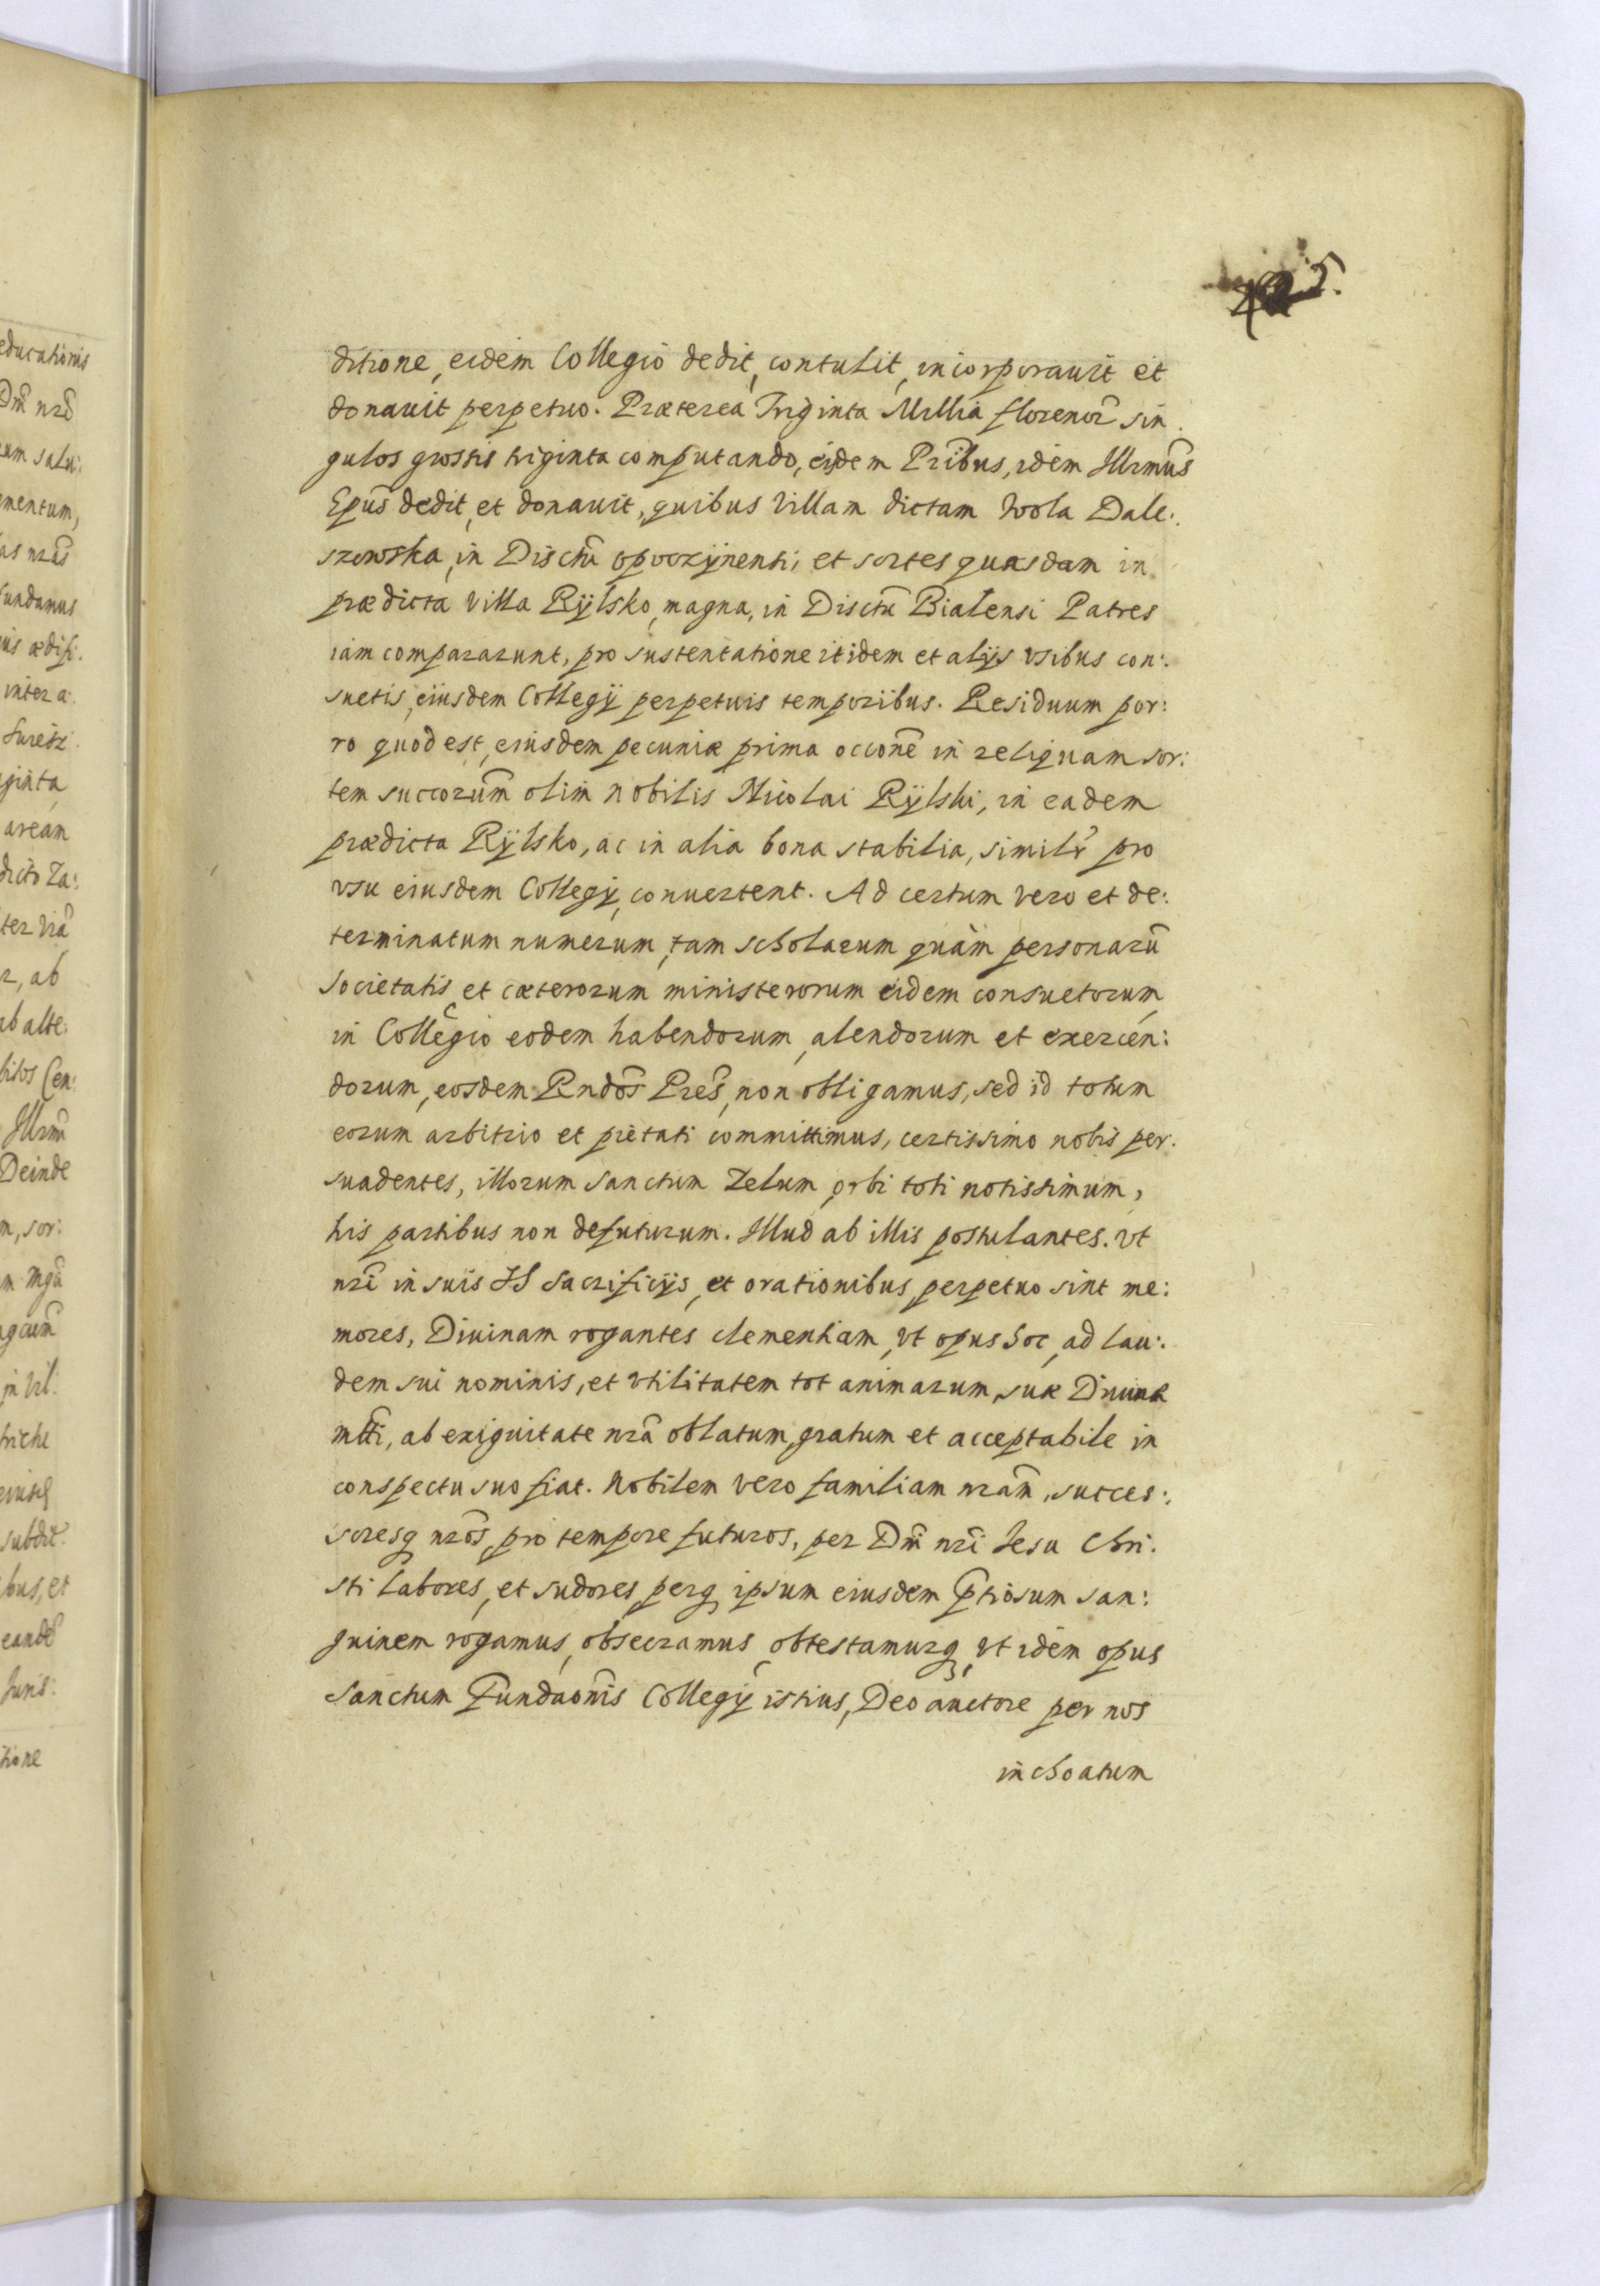 5.
ditione, eidem Collegio dedit, contulit, incorporauit et
donauit perpetuo. Præterea Triginta Millia florenor̃ sin:
gulos grossis triginta computando, eisdem Pr̃ibus, idem Illr̃mus
Ep̃us dedit, et donauit, quibus Villam dictam Wola Dale:
szowska, in Disctũ opoczÿnensi, et sortes quasdam in
prædicta villa Rÿlsko magna, in Disctũ Bialensi Patres
iam compararunt, pro sustentatione itidem et alijs vsibus con:
suetis, eiusdem Collegij perpetuis temporibus. Residuum por:
ro quod est, eiusdem pecuniæ prima occõne in reliquam sor:
tem succorũm olim Nobilis Nicolai Rÿlski, in eadem
prædicta Rÿlsko, ac in alia bona stabilia, similr̃ pro
vsu eiusdem Collegij, conuertent. Ad certum vero et de:
terminatum numerum, tam scholarum quàm personarũ
societatis et cæterorum ministrorum eidem consuetorum,
in Collegio eodem habendorum, alendorum et exercen:
dorum, eosdem Rndõs Prẽs, non obligamus, sed id totum
eorum arbitrio et pietati committimus, certissimo nobis per:
suadentes, illorum sanctum Zelum, orbi toti notissimum,
his partibus non defuturum. Illud ab illis postulantes. Vt
nr̃i in suis SS Sacrificijs, et orationibus, perpetuo sint me:
mores, Diuinam rogantes clementiam, vt opus hoc, ad lau:
dem sui nominis, et vtilitatem tot animarum, suæ Diuinæ
mt̃ti, ab exiguitate nr̃a oblatum, gratum et acceptabile in
conspectu suo fiat. Nobilem vero familiam nr̃am, succes:
soresq nr̃os, pro tempore futuros, per Dñi nr̃i Iesu Chri:
sti labores, et sudores, perq ipsum eiusdem p̃tiosum san:
guinem rogamus, obsecramus, obtestamurq, vt idem opus
sanctum Fundaõnis Collegij istius, Deo auctore per nos
inchoatum